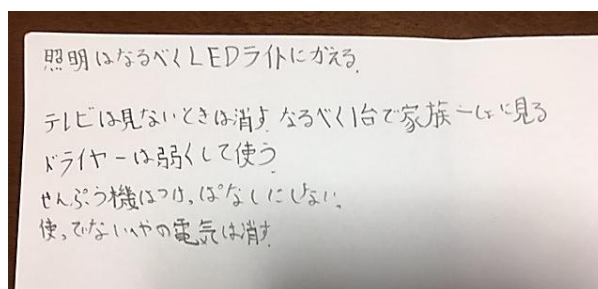 照明はなるべくLEDライトにかえる.
テレビは見ないときは消す.なるべく1台で家族一しょに見る
ドライヤーは弱くして使う.
せんぷう機はつけっぱなしにしない.
使ってないへやの電気は消す.